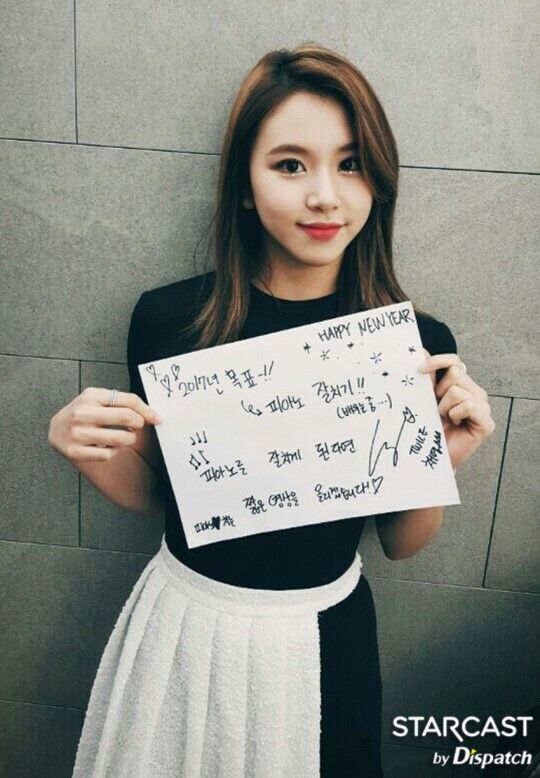 HAPPY NEW YEAR
2017년 목표-!!
피아노 잘치기!!
(배우는중...)
피아노를 잘치게 된다면
짧은 영상을 올리겠습니다!
TWICE
채영
STARCAST
by Dispatch